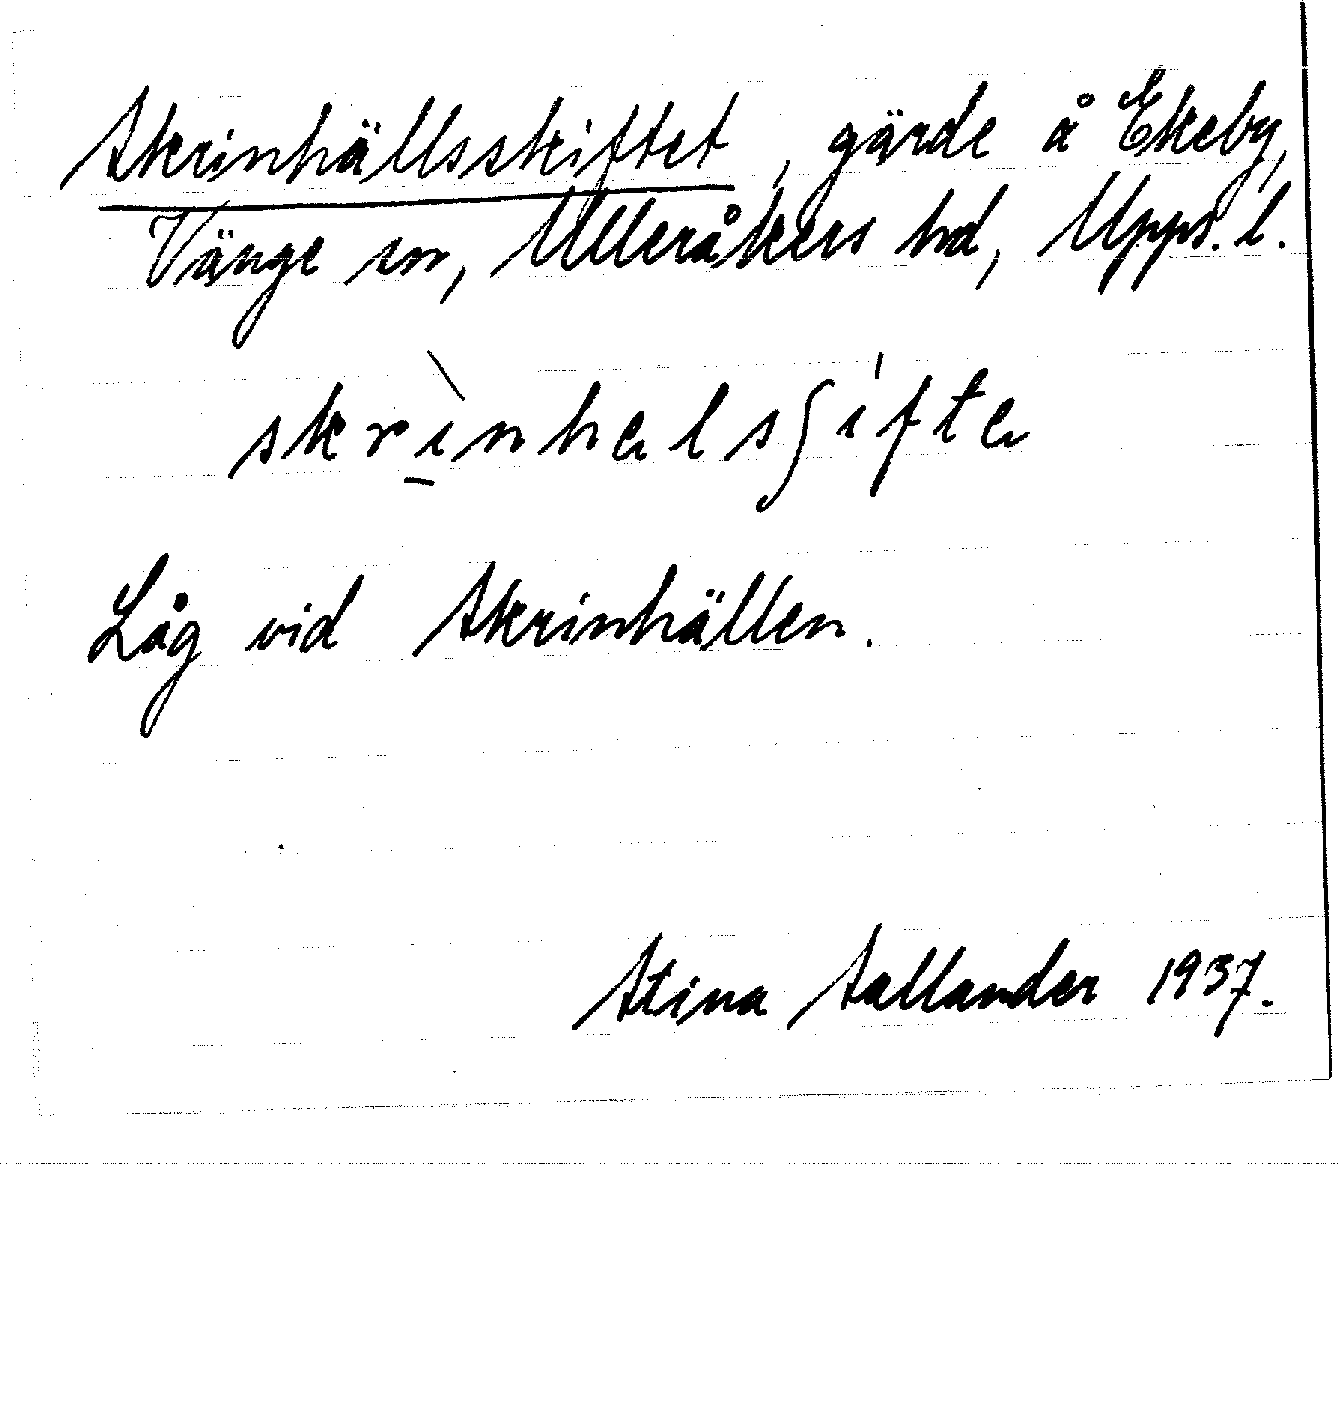 Skrinhällsskiftet, gärde å Ekeby,
Vänge sn, Ulleråkers hd, Upps. l.
skrı̱̀nhelsʃífte
Låg vid Skrinhällen.
Stina Sallander 1937.